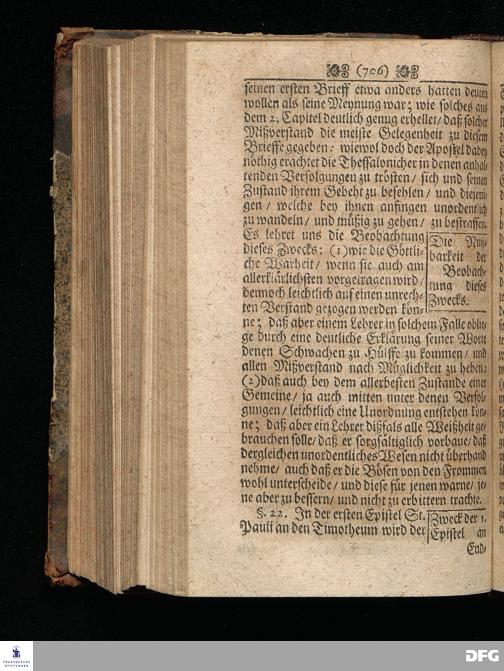 (706)
seinen ersten Brieff etwa anders hatten deuten
wollen als seine Meynung war; wie solches aus
dem 2. Capitel deutlich genug erhellet/ daß solcher
Mißverstand die meiste Gelegenheit zu diesem
Brieffe gegeben: wiewol doch der Apostel dabey
nöthig erachtet die Thessalonicher in denen anhal-
tenden Verfolgungen zu trösten/ sich und seinen
Zustand ihrem Gebeht zu befehlen/ und diejeni-
gen/ welche bey ihnen anfingen unordentlich
zu wandeln/ und müßig zu gehen/ zu bestraffen.
Es lehret uns die Beobachtung
dieses Zwecks: (1) wie die Göttli-
che Warheit/ wenn sie auch am
allerklärlichsten vorgetragen wird/
dennoch leichtlich auf einen unrech-
ten Verstand gezogen werden kön-
Die Nutz-
barkeit der
Beobach-
tung dieses
Zwecks.
ne; daß aber einem Lehrer in solchem Falle oblie-
ge durch eine deutliche Erklärung seiner Worte
denen Schwachen zu Hülffe zu kommen/ und
allen Mißverstand nach Möglichkeit zu heben:
(2) daß auch bey dem allerbesten Zustande einer
Gemeine/ ja auch mitten unter denen Verfol-
gungen/ leichtlich eine Unordnung entstehen kön-
ne; daß aber ein Lehrer dißfals alle Weißheit ge-
brauchen solle/ daß er sorgfältiglich vorbaue/ daß
dergleichen unordentliches Wesen nicht überhand
nehme/ auch daß er die Bösen von den Frommen
wohl unterscheide/ und diese für jenen warne/ je-
ne aber zu bessern/ und nicht zu erbittern trachte.
§. 22. In der ersten Epistel St.
Pauli an den Timotheum wird der
Zweck der 1.
Epistel an
End-
FRANCKESCHE
STIFTUNGEN
DFG